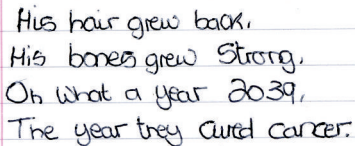 His hair grew back.
His bones grew Strong.
Oh what a year 2039,
The year they cured cancer.